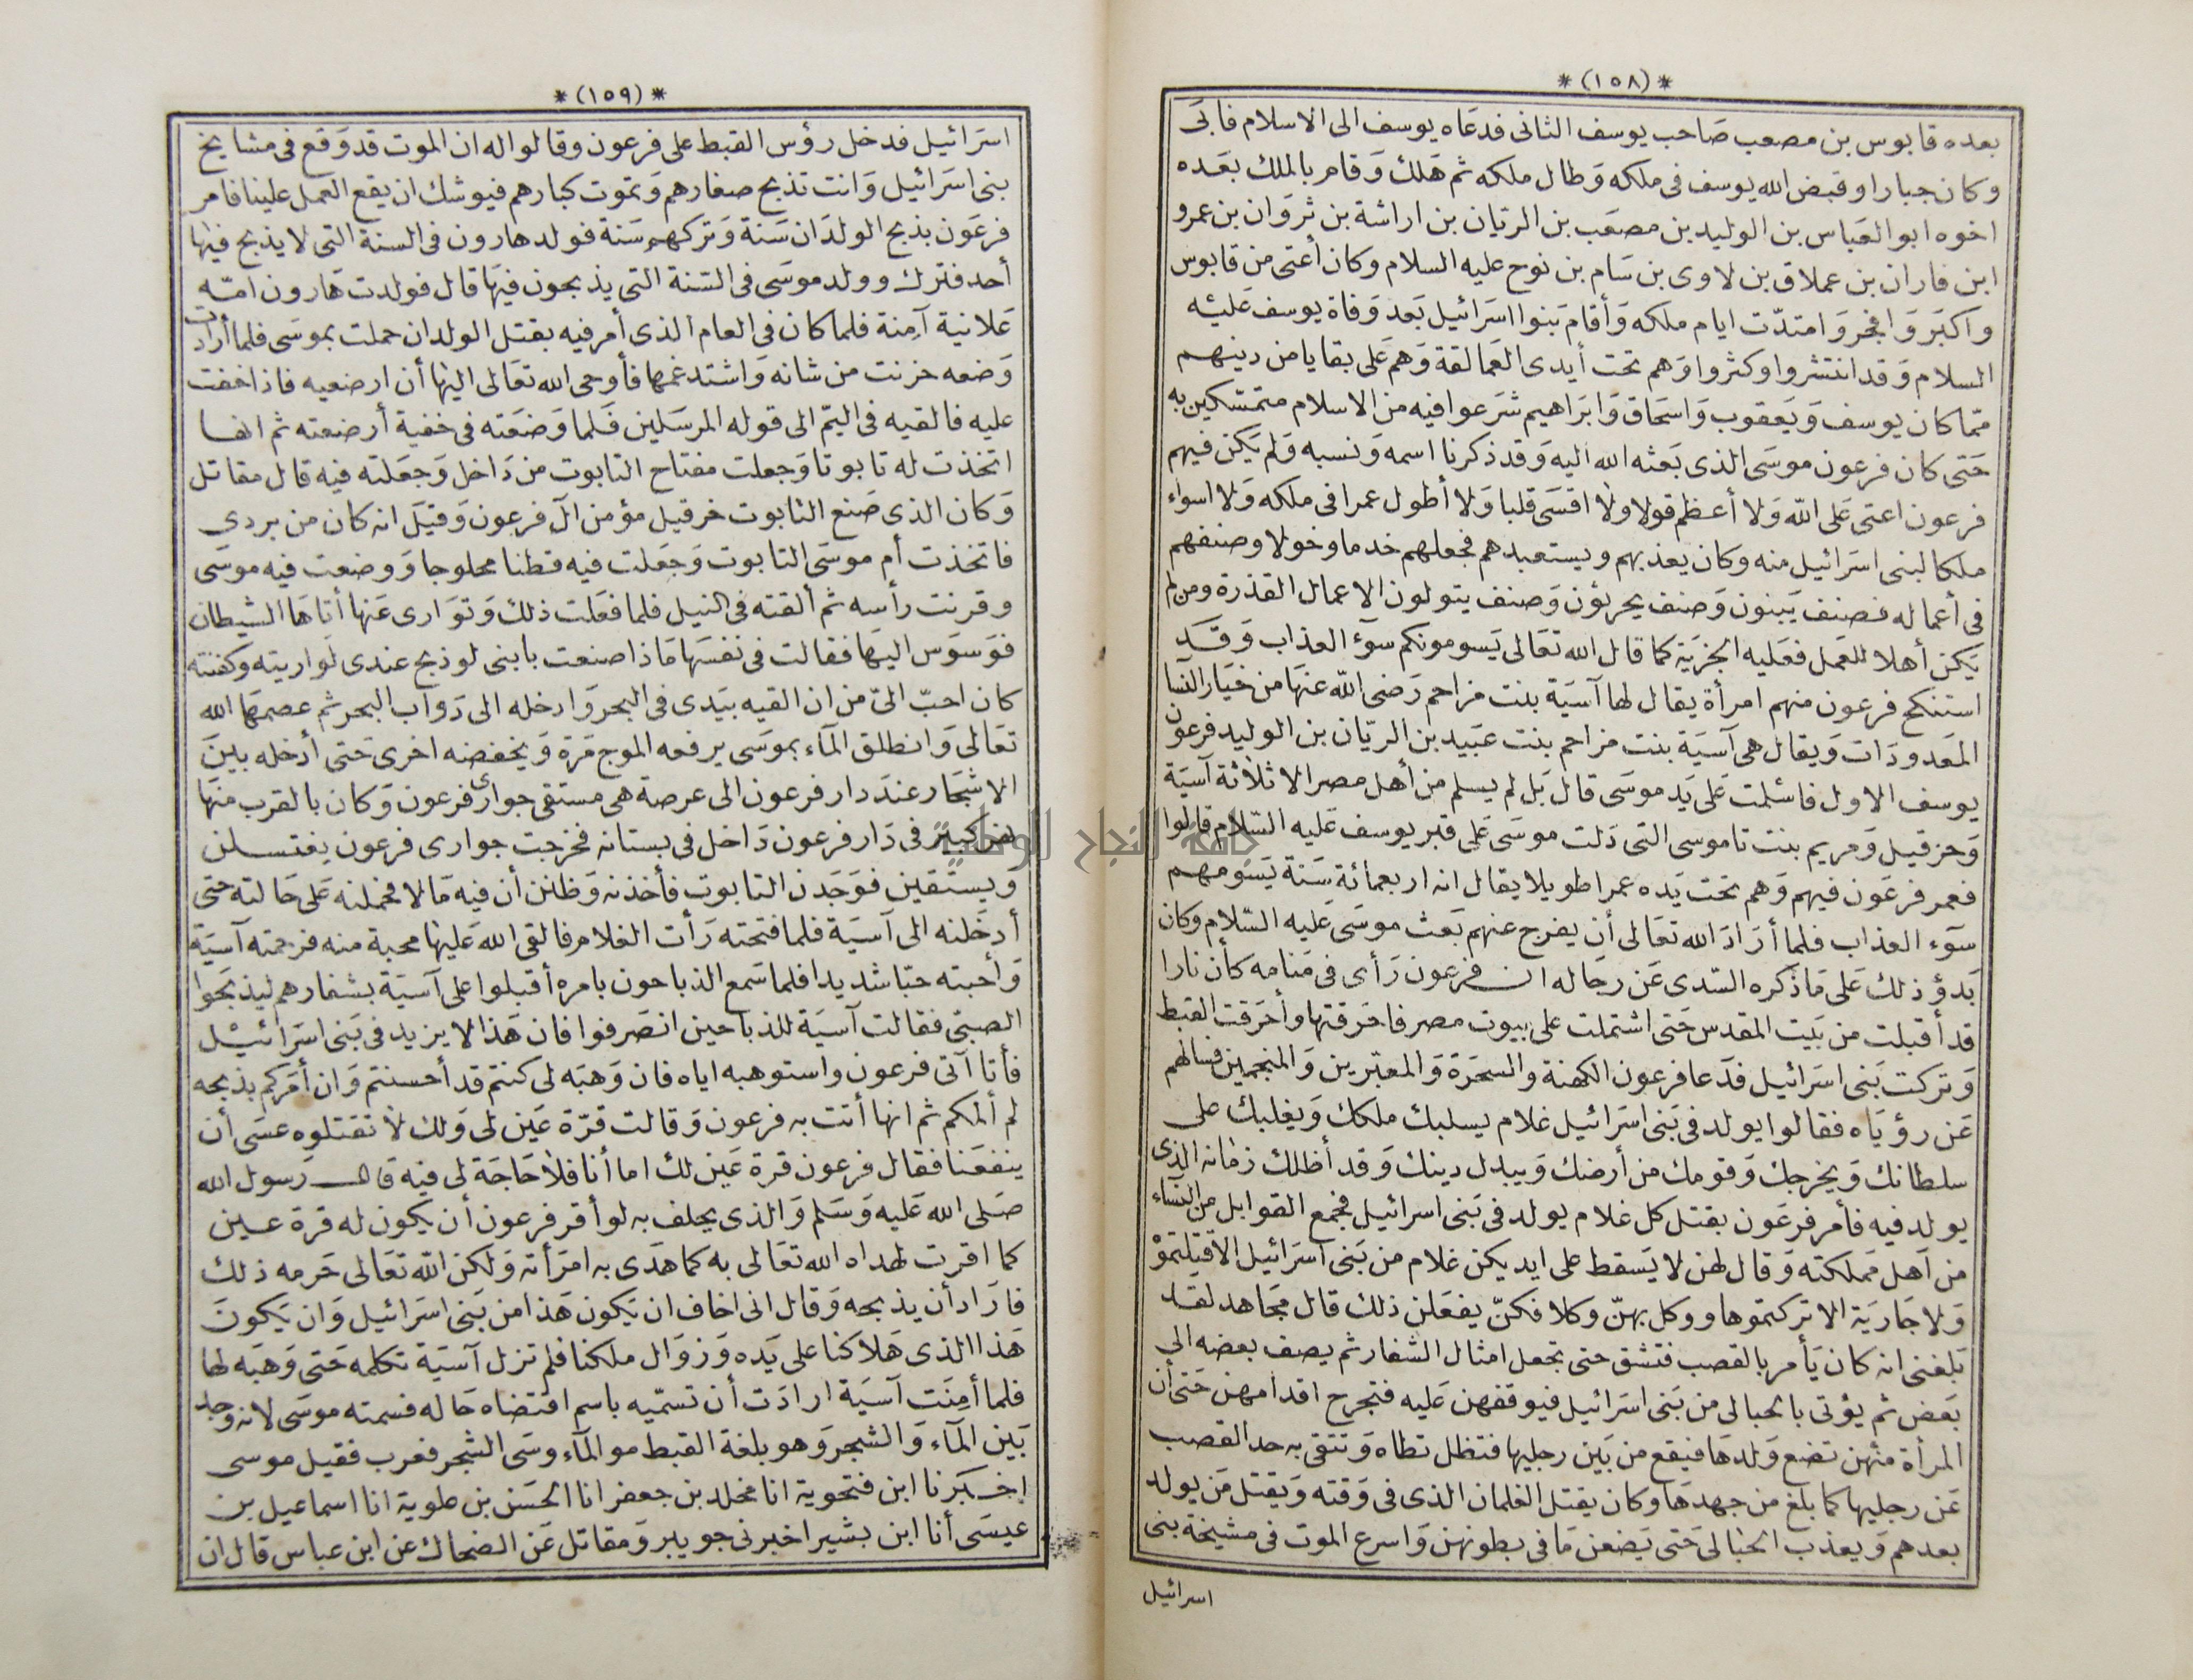 *(١٥٨)*
بعده قابوس بن مصعب صَاحب يوسف الثانى فدعَاه يوسف الى الاسلام فابَى
وكان جبارا وقبض الله يوسف فى ملكه وَطال ملكه ثم هَلك وَقام بالملك بعَده
اخوه ابو العَباس بن الوليد بن مصعَب بن الريّان بن اراشة بن ثروَان بن عمرو
ابن فاران بن عملاق بن لاوى بن سَام بن نوح عليه السلام وكان أعتى من قابوس
وَاكبَر وَافجر وَامتدّت ايام ملكه وَأقام بَنوا اسرَائيل بَعد وَفاة يوسف عَليْه
السلام وَقد انتشروا وكثروا وَهم تحت أيدى العَمالقة وَهم عَلى بقايا من دينهم
ممّا كان يوسف وَيَعقوب وَاسحَاق وَابرَاهيم شرَعوا فيه من الاسلام متمسّكين به
حَتى كان فرعون موسَى الذى بَعثه الله اليه وَقد ذكرنا اسمه وَنسبه وَلم يَكن فيهم
فرعون اعتى عَلى الله وَلا أعظم قولا ولا اقسَى قلبا وَلا أطول عمرا فى ملكه وَلا اسواء
ملكا لبنى اسرَائيل منه وكان يعذبهم ويستعبدهم فجعلهم خدما وخولا وصنفهم
فى أعماله فصنف يَبنون وَصنف يحرثون وَصنف يتولون الاعمال القذرة ومن لم
يَكن أهلا للعَمل فعَليه الجزيَة كما قال الله تعَالى يَسومونكم سوٓء العذاب وَقَد
استنكح فرعون منهم امرأة يقال لها آسيَة بنت مزاحم رَضى الله عنهَا من خيَار النسا
المعَدودَات وَيقال هى آسيَة بنت مزاحم بنت عبَيد بن الريّان بن الوليد فرعون
يوسف الاول فاسْلمت عَلى يَد موسَى قال بَل لم يسلم من أهل مصر الا ثلاثة آسيَة
وَحزقيل وَمريم بنت ناموسى التى دَلت موسَى عَلى قبر يوسف عَليه السّلام قالوا
فعمر فرعَون فيهم وَهم تحت يَده عمرا طويلا يقال انه اربعمائة سَنة يَسومهم
سوٓء العذاب فلما أرَادَ الله تعَالى أن يفرج عنهم بَعث موسَى عَليه السّلام وكان
بَدؤ ذلك عَلى مَا ذكره السّدى عَن رجَاله ان فرعون رَأى فى مَنامه كأن نارا
قد أقبلت من بَيت المقدس حَتى اشتملت على بيوت مصر فاحَرقتها وأحرَقت القبط
وَتركت بَنى اسرَائيل فدَعا فرعون الكهنة والسحَرَة وَالمعبّرين وَالمنجمين فسالهم
عَن رؤيَاه فقالوا يولد فى بَنى اسرَائيل غلام يسلبك ملكك وَيغلبك على
سلطانك وَيخرجك وَقومك من أرضك وَيبدل دينك وَقد أظلك زمانه الذى
يولد فيه فأمر فرعَون بقتل كل غلام يولد فى بَنى اسرائيل فجمع القوابل من النسَاء
من اَهل مَملكته وَقال لهن لا يَسقط على ايديكن غلام من بَنى اسرَائيل الا قتلتموْ
وَلا جَاريَة الا تركتموها ووكل بهنّ وكلا فكنّ يفعَلن ذلك قال مجَاهد لقد
بَلغنى انه كان يَأمر بالقصب فتشق حتى تجعل امثال الشفار ثم يصف بعضه الى
بَعض ثم يؤتى بالحبالى من بَنى اسرَائيل فيوقفهن عَليه فتجرح اقدامهن حَتى أن
المرأة منْهن تضع وَلدهَا فيقع من بَين رجليها فتظل تطاه وَتتقى به حد القصب
عَن رجليها كما بلغ من جهدهَا وكان يقتل الغلمان الذى فى وَقته وَيقتل مَن يولد
بعدهم وَيعذب الحبالى حَتى يَضعن مَا فى بطونهن وَاسرع الموت فى مشيخة بنى
اسرائيل
*(١٥٩)*
اسرَائيل فدخل رؤس القبط على فرعون وقالوا له ان الموت قد وَقع فى مشايخ
بنى اسرَائيل وَانت تذبح صغارهم وَتموت كبارهم فيوشك ان يقع العمل علينا فامر
فرعَون بذبح الولدَان سَنة وَتركهم سَنة فولد هارون فى السنة التى لا يذبح فيها
أحد فترك وولد موسَى فى السّنة التى يذبحون فيهَا قال فولدت هَارون امّه
عَلانية آمنة فلما كان فى العام الذى أمر فيه بقتل الولدان حملت بموسَى فلما أرادت
وَضعه حزنت من شانه وَاشتد غمها فأوحى الله تعَالى اليها أن ارضعيه فاذا خفت
عليه فالقيه فى اليمّ الى قوله المرسَلين فَلما وَضعَته فى خفية أرضعته ثم انها
اتخذت له تابوتا وَجعلت مفتاح التابوت من دَاخل وَجعَلته فيه قال مقاتل
وَكان الذى صَنع التابوت خرقيل مؤمن آل فرعون وَقيَل انه كان من بردى
فاتخذت أم موسَى التابوت وَجعَلت فيه قطنا محلوجا وَوضعت فيه موسَى
وقرنت رأسه ثم ألقته فى النيل فلما فعَلت ذلك وَتوَارى عَنها أتاهَا الشيطان
فوَسوَس اليهَا فقالت فى نفسَها مَاذا صنعت بابنى لو ذبح عندى لوَاريته وكفنته
كان احبّ الىّ من ان القيه بيَدى فى البحر وَادخله الى دَوَاب البحر ثم عصمهَا الله
تعَالى وَانطلق المَاء بموسَى يرفعه الموج مَرة وَيخفضه اخرى حَتى أدخله بين
الاشجَار عندَ دار فرعون الى عرصة هى مستقى جوارى فرعون وَكان بالقرب منهَا
نهر كبير فى دَار فرعون دَاخل فى بستانه فخرجت جوارى فرعون يغتسلن
وَيستَقين فوَجَدن التابوت فأخذنه وَظنن أن فيه مَالا فحملنه عَلى حَالته حتى
أدخَلنه الى آسيَة فلما فتحته رَأت الغلام فالقى الله عَليها محبة منه فرحمته آسيَة
وَأحبته حبّا شديدا فلما سَمع الذباحون بامره أقبلوا على آسيَة بشفارهم ليذبحَوا
الصبىّ فقالت آسيَة للذباحين انصَرفوا فان هَذا لا يزيد فى بَنى اسرَائيْل
فأنا آتى فرعون واستوهبه اياه فان وَهبَه لى كنتم قد أحسنتم وَان أمَركم بذبحه
لم ألمكم ثم انها أتت به فرعون وَقالت قرّة عَين لى وَلك لا تقتلوه عسَى أن
ينفعَنا فقال فرعون قرة عَين لك اما أنا فلا حَاجَة لى فيه قال رَسول الله
صَلى الله عَليه وَسَلم وَالذى يحلف به لو أقر فرعون أن يكون له قرة عين
كما اقرت لهداه الله تعَالى به كما هَدى به امرَأته وَلكن الله تعَالى حَرمه ذلك
فارَاد أن يذبحه وَقال انى اخاف ان يَكون هَذا من بَنى اسرَائيل وَان يَكونَ
هَذا الذى هَلاكنا على يَده وَزوَال ملكنا فلم تزل آسيَة تكلمه حَتى وَهبَه لها
فلما أمنَت آسيَة ارادَت أن تسمّيه باسم اقتضاه حَاله فسمته موسَى لانه وجد
بَين المآء وَالشجر وَهو بلغة القبط مو المآء وسَى الشجر فعرب فقيل موسى
اخبَرنا ابن فتحوية انا مخلد بن جعفر انا الحَسن بن علوية انا اسماعيل بن
عيسَى أنا ابن بشير اخبرنى جويبر وَمقاتل عَن الضحاك عن ابن عباس قال ان
جامعة النجاح الوطنية